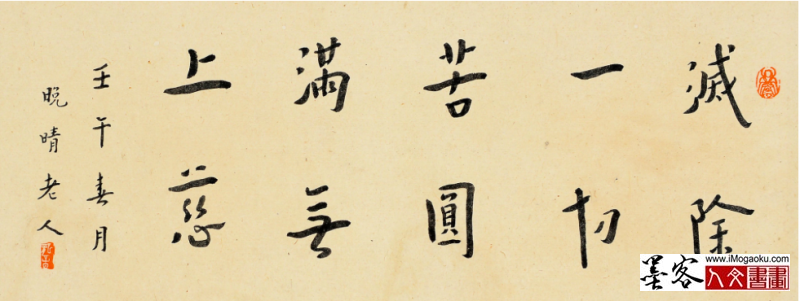 滅除
一切
苦圓
滿無
上慈
壬午春月
晚晴老人
墨客
www.iMogaoku.com
人文書畫